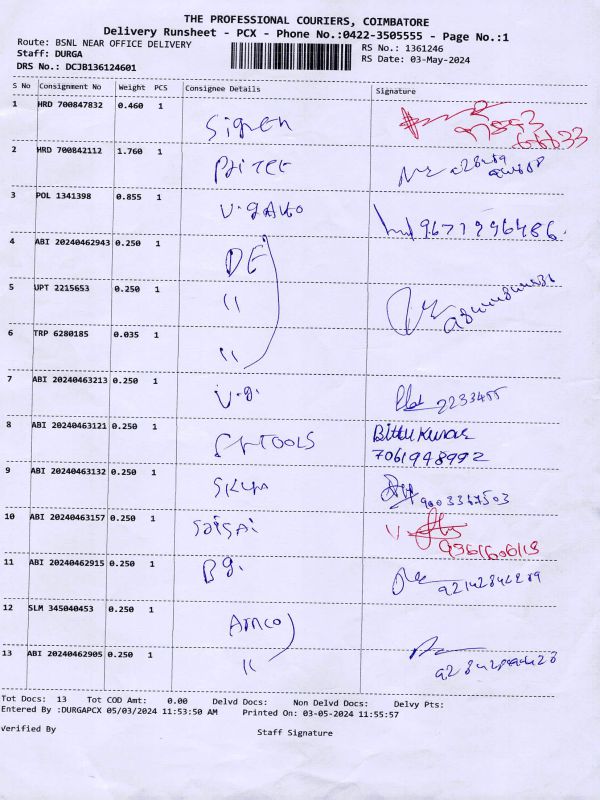 THE PROFESSIONAL COURIERS, COIMBATORE
Delivery Runsheet - PCX - Phone No.:0422-3505555 - Page No.:1
Route: BSNL NEAR OFFICE DELIVERY RS No.: 1361246
Staff: DURGA RS Date: 03-May-2024
DRS No.: DCJB136124601
S No Consignment No Weight PCS Consignee Details Signature
1 HRD 700847832 0.460 1
2 HRD 700842112 1.760 1
3 POL 1341398 0.855 1 9671996486
4 ABI 20240462943 0.250 1 DE
5 UPT 2215653 0.250 1 "
6 TRP 6280185 0.035 1 "
7 ABI 20240463213 0.250 1 2233455
8 ABI 20240463121 0.250 1 TOOLS Bittu Kumar
7061948992
9 ABI 20240463132 0.250 1 9003367503
10 ABI 20240463157 0.250 1
11 ABI 20240462915 0.250 1
12 SLM 345040453 0.250 1
13 ABI 20240462905 0.250 1 "
Tot Docs: 13 Tot COD Amt: 0.00 Delvd Docs: Non Delvd Docs: Delvy Pts:
Entered By :DURGAPCX 05/03/2024 11:53:50 AM Printed On: 03-05-2024 11:55:57
Verified By Staff Signature